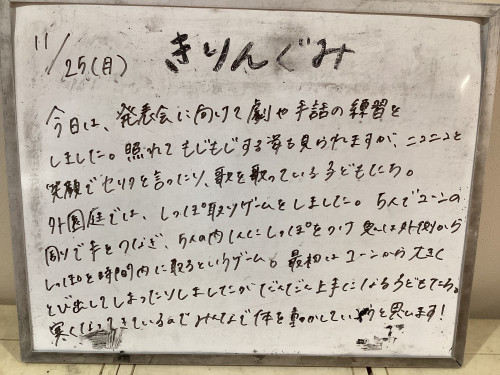 11/25(月) きりんぐみ
今日は、発表会に向けて劇や手話の練習を
しました。照れてもじもじする姿も見られますが、ニコニコと
笑顔でセリフを言ったり、歌を歌っている子どもたち。
外園庭では、しっぽ取りゲームをしました。5人でコーンの
周りで手をつなぎ、5人の内1人にしっぽをつけ鬼は外側から
しっぽを時間内に取るというゲーム。最初はコーンから大きく
とび出してしまったりしましたがだんだん上手になる子どもたち。
寒くなってきているのでみんなで体を動かしていこうと思います!